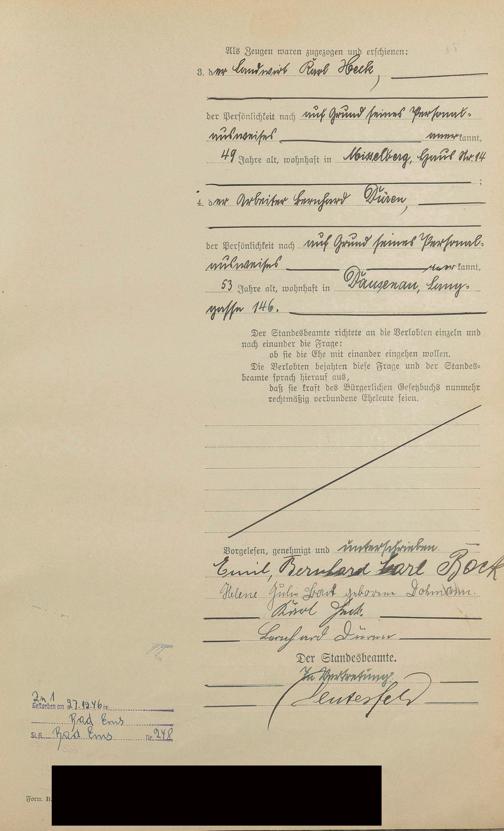 Als Zeugen waren zugezogen und erschienen:
3. der Landwirt Karl Heck,
der Persönlichkeit nach auf Grund seines Personal-
ausweises anerkannt,
49 Jahre alt, wohnhaft in Misselberg, Haus Nr. 14
;
4. der Arbeiter Bernhard Düren,
der Persönlichkeit nach auf Grund seines Personal-
ausweises anerkannt,
53 Jahre alt, wohnhaft in Dausenau, Lang-
gasse 146.
Der Standesbeamte richtete an die Verlobten einzeln und
nach einander die Frage:
ob sie die Ehe mit einander eingehen wollen.
Die Verlobten bejahten diese Frage und der Standes-
beamte sprach hierauf aus,
daß sie kraft des Bürgerlichen Gesetzbuchs nunmehr
rechtmäßig verbundene Eheleute seien.
Vorgelesen, genehmigt und unterschrieben
Emil, Bernhard Karl Bock
Helene geborene
Karl Heck.
Bernhard Düren
Der Standesbeamte.
In Vertretung
Zu 1
Gestorben am 27.12.46 in
Bad Ems
St.A. Bad Ems Nr. 248
Form.